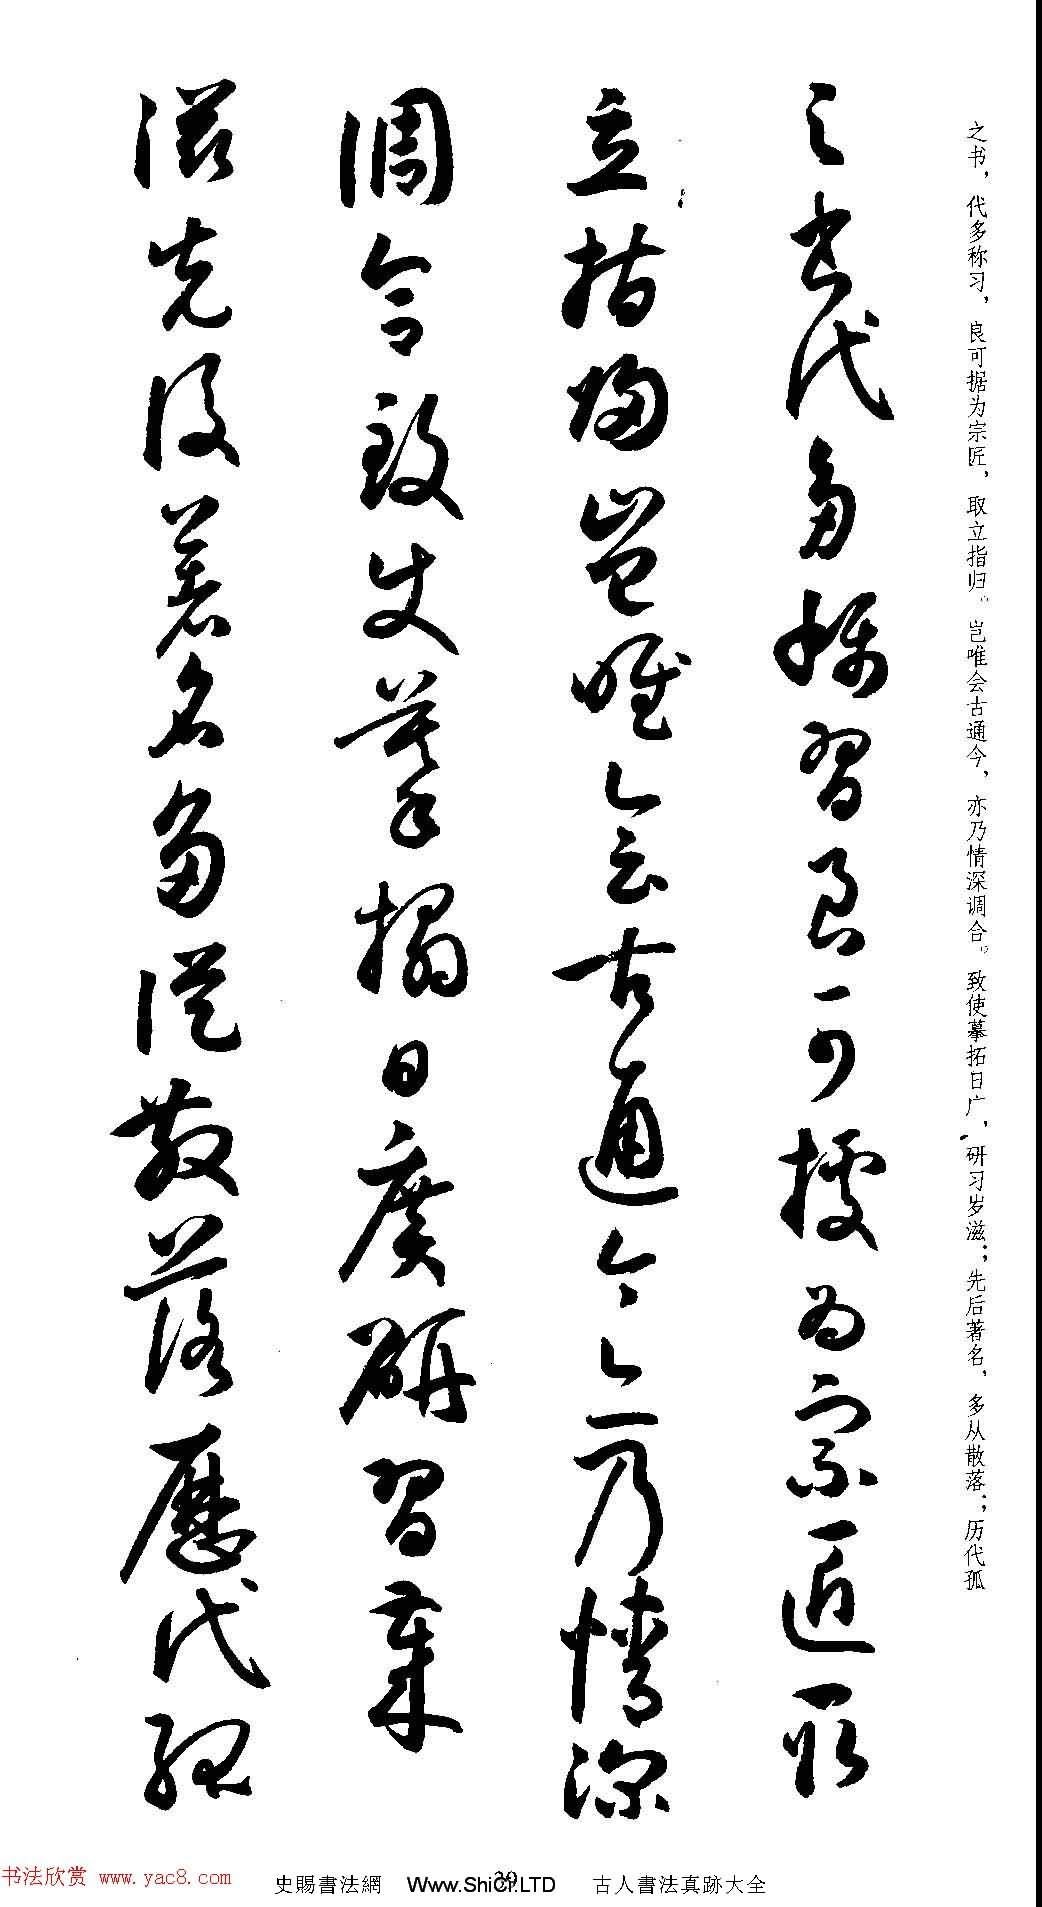 之书，代多称习，良可据为宗匠，取立指归。岂唯会古通今，亦乃情深调合。致使摹拓日广，研习岁滋；先后著名，多从散落；历代孤
之書代多稱習良可據為宗匠取
立指歸豈唯會古通今亦乃情深
調合致使摹搨日廣研習歲
滋先後著名多從散落歷代孤
书法欣赏 www.yac8.com
史賜書法網 Www.ShiCi.LTD 古人書法真跡大全